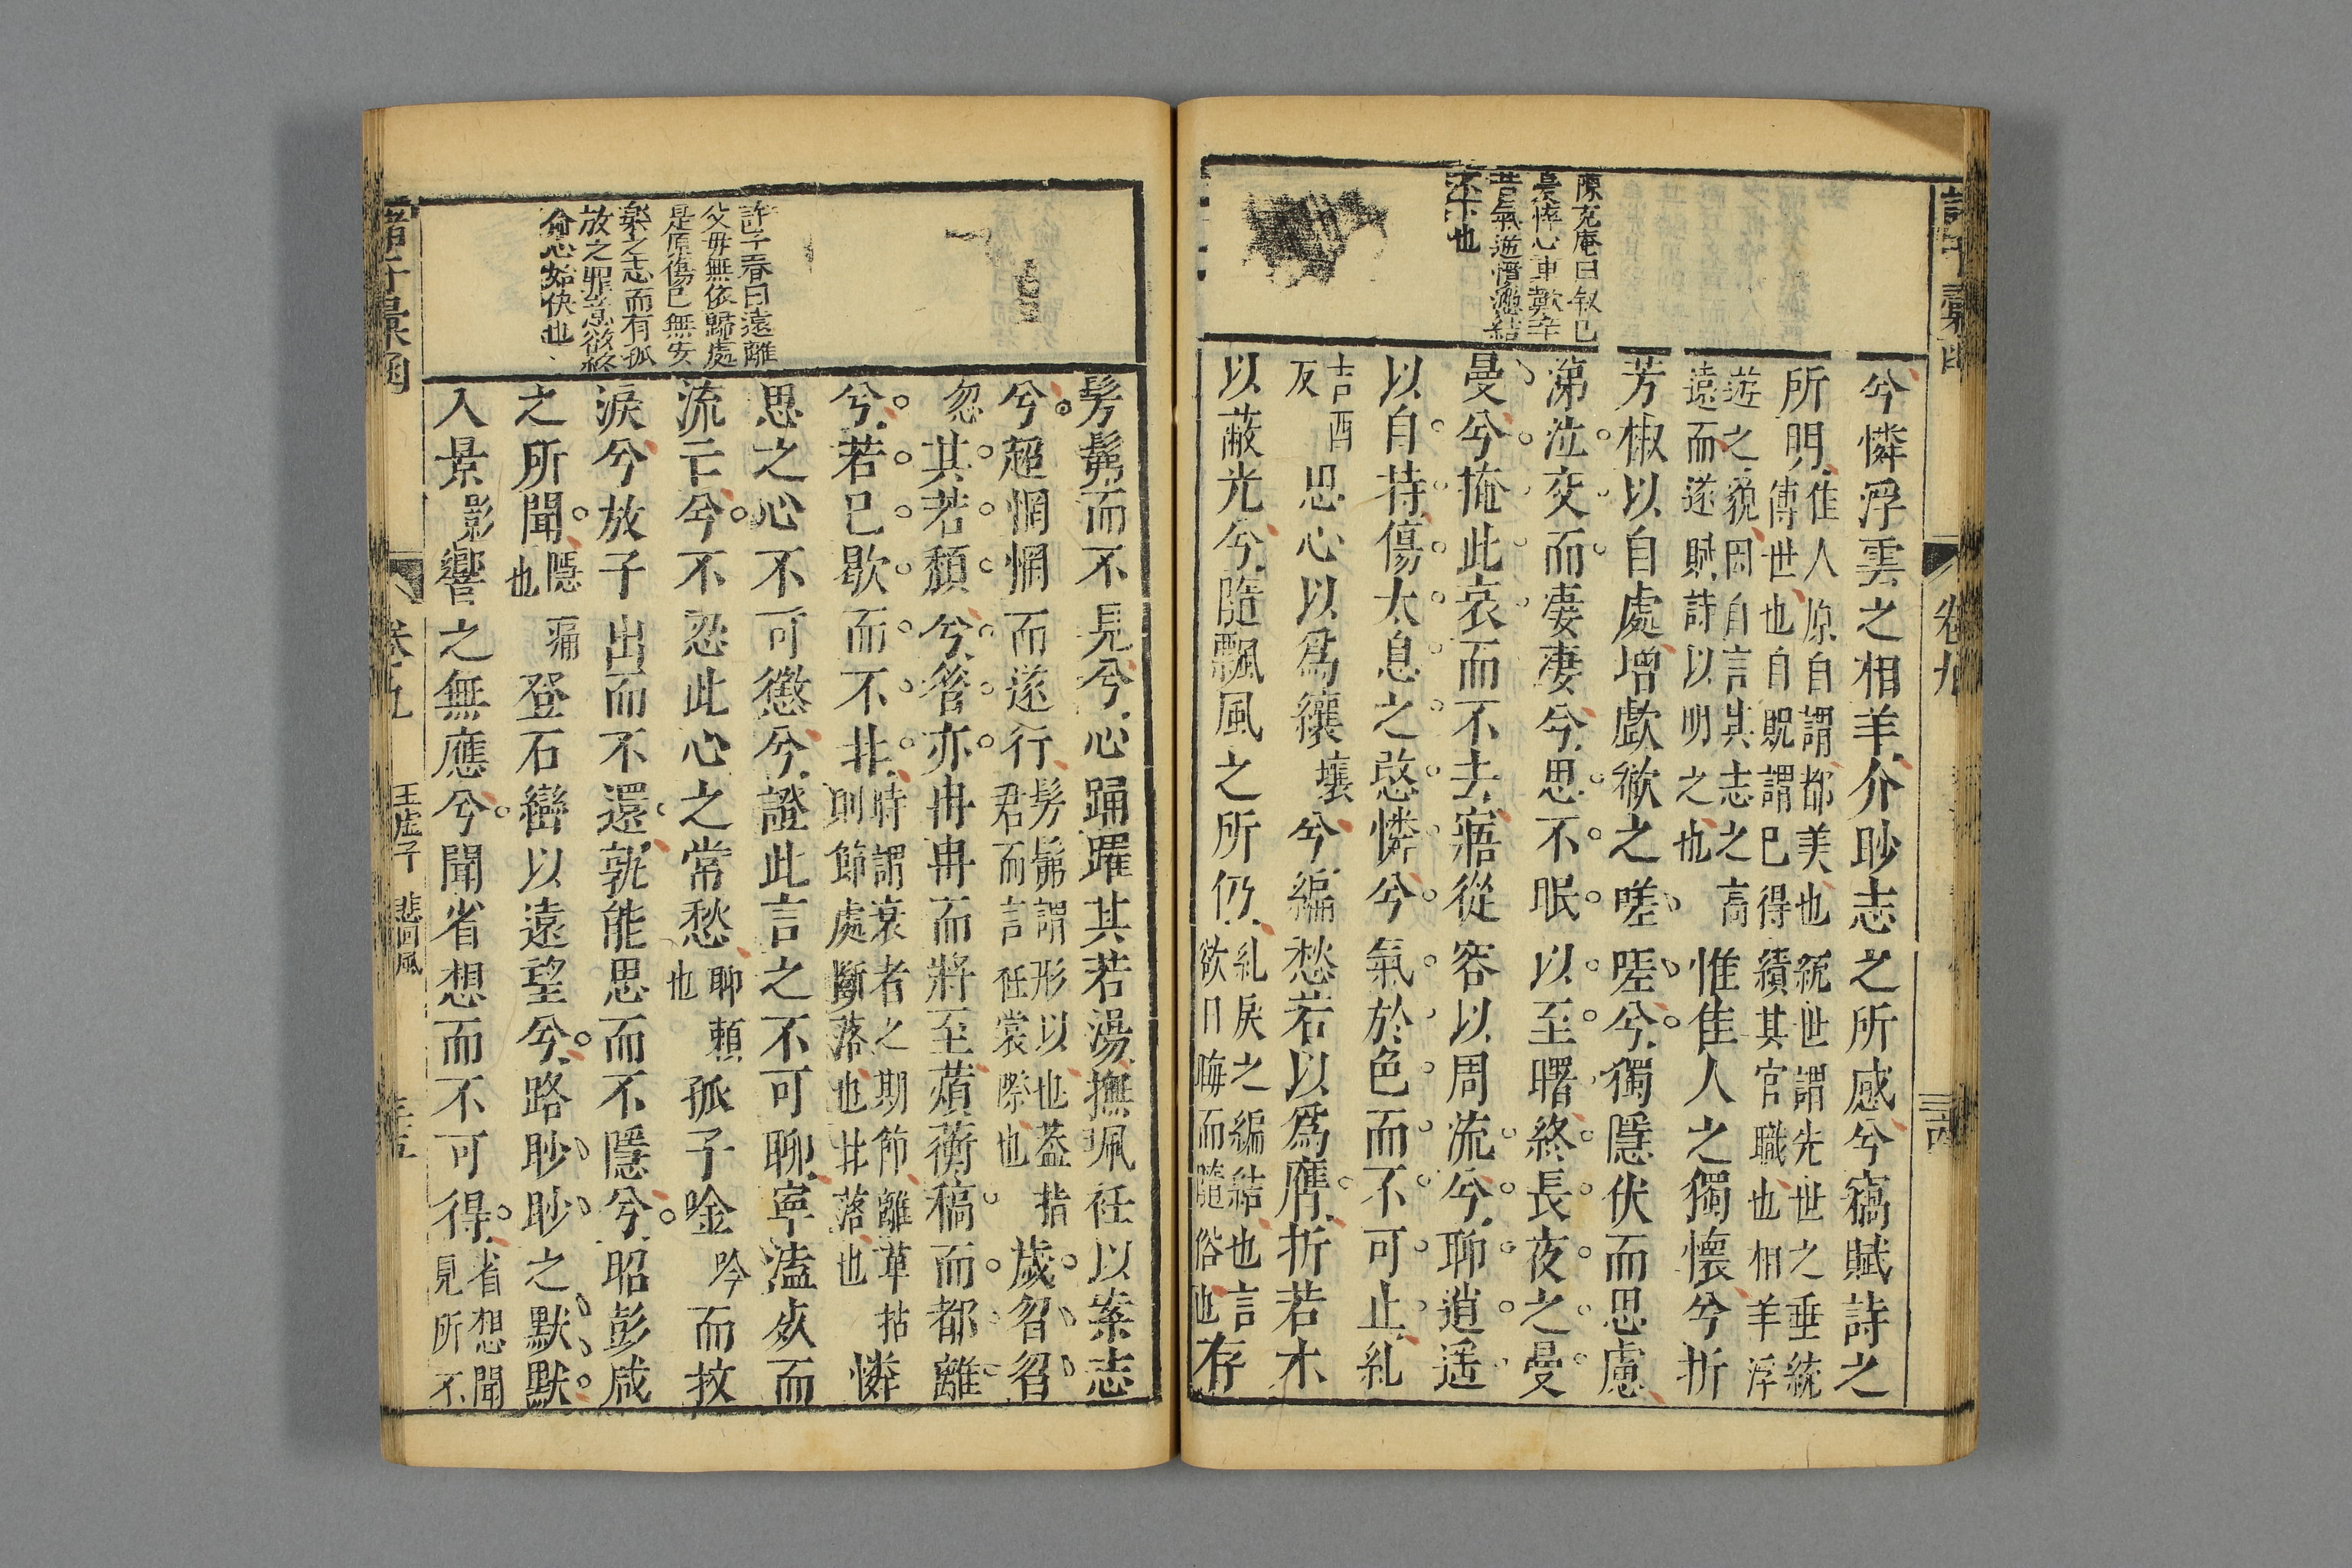 諸子彙函
卷九
陳克庵曰叙己
哀悴心車歎辛
昔氣逝憯懣結
也
兮憐浮雲之相羊介眇志之所感兮竊賦詩之
所明隹人原自謂都美也統世謂先世之垂統
傳世也自貺謂己得續其官職也相羊浮
遊之貌因自言其志之高
遠而遂賦詩以明之也惟隹人之獨懷兮折
芳椒以自處增歔欷之嗟嗟兮獨隱伏而思慮
涕泣交而凄凄兮思不眠以至曙終長夜之曼
曼兮掩此哀而不去寤從容以周流兮聊逍遥
以自持傷太息之愍憐兮氣於色而不可止糺
吉酉反思心以爲纕壤兮編愁若以爲膺折若木
以蔽光兮隨飄風之所仍糺戾之編結也言
欲日晦而隨俗也存
許子春曰遠離
父毋無依歸處
是原傷已無安
樂之志而有孤
放之罪意欲終
命忽始快也
髣髴而不見兮心踊躍其若湯撫珮衽以案志
兮超惘惘而遂行髣髴謂形以也葢指
君而言衽裳際也歲曶曶
忽其若頹兮䇯亦冉冉而將至薠蘅稿而都離
兮若已歇而不非時謂衰者之期節離草枯
則節處斷落也非落也憐
思之心不可懲兮證此言之不可聊寧溘㱙而
流亡兮不忍此心之常愁聊賴也孤子唫吟而抆
淚兮放子出而不還孰能思而不隱兮昭彭咸
之所聞隱痛也登石巒以遠望兮路眇眇之默默
入景影響之無應兮聞省想而不可得省想聞
見所不
諸子彙函
卷九
玉虛子
悲回風